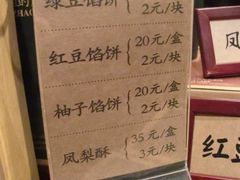 绿豆馅饼 2元/块
红豆馅饼 20元/盒
2元/块
柚子馅饼 20元/盒
2元/块
凤梨酥 35元/盒
3元/块
凤
红豆